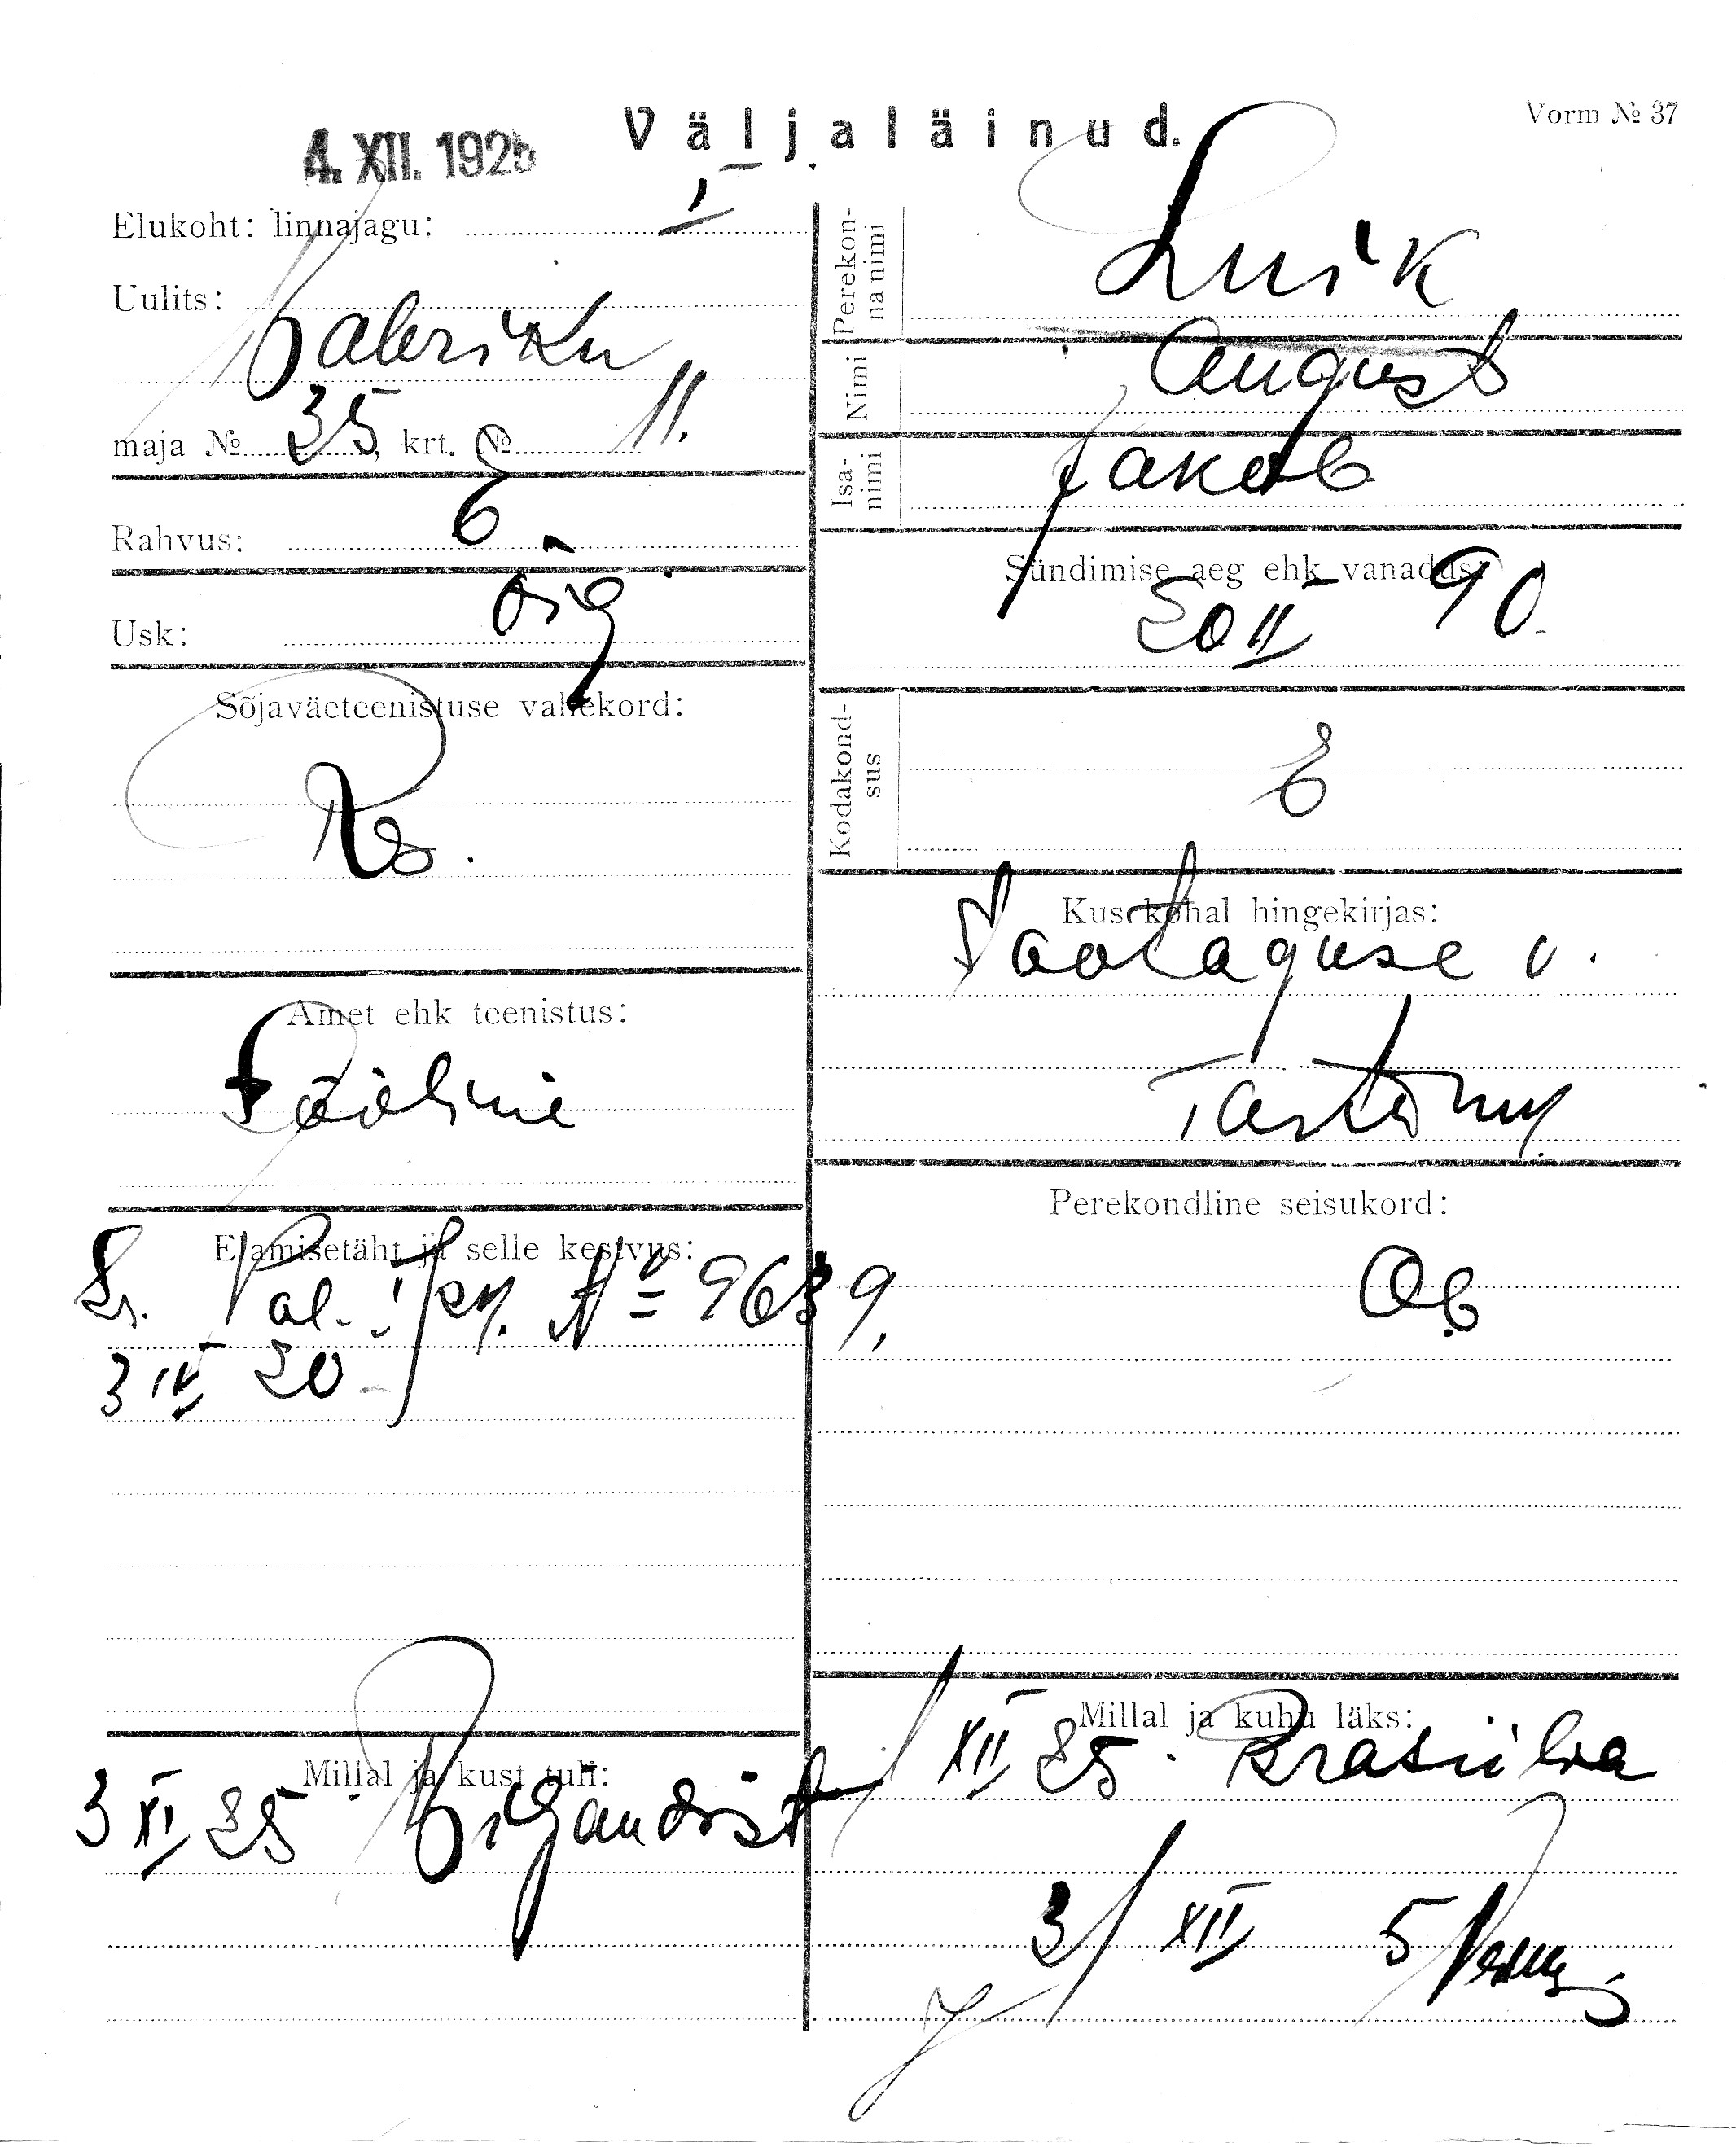 4. XII. 1925
Väljaläinud.
Vorm № 37
Elukoht: linnajagu: I
Uulits:
Vabriku
maja № 35, krt. № 11.
Rahvus: E
Usk: õig
Sõjaväeteenistuse vahekord:
Res.
Amet ehk teenistus:
Tööline
Elamisetäht ja selle kestvus:
Pal. № 9639,
3 IV 20
Millal ja kust tuli:
3 XI 25
Perekonnanimi Luik
Nimi August
Isanimi Jakob
Sündimise aeg ehk vanadus:
20 II 90.
Kodakondsus E
Kus kohal hingekirjas:
Sootaguse v.
Tartu m.
Perekondline seisukord:
Ab
Millal ja kuhu läks:
XII 25. Brasiilia
3/XII 5